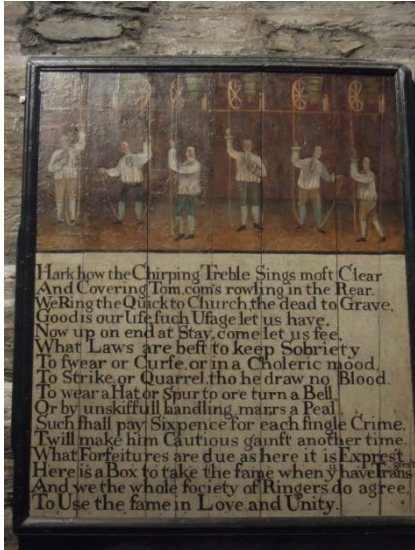 Hark how the Chirping Treble Sings moſt Clear
And Covering Tom com's rowling in the Rear.
We Ring the Quick to Church, the dead to Grave,
Good is our Uſe, ſuch Uſage let us have.
Now up on end at Stay, come let us ſee,
What Laws are beſt to keep Sobriety
To ſwear or Curſe, or in a Choleric mood,
To Strike or Quarrel, tho he draw no Blood.
To wear a Hat or Spur to o're turn a Bell,
Or by unskilfull handling marrs a Peal,
Such ſhall pay Sixpence for each ſingle Crime,
Twill make him Cautious gainſt another time.
What Forfeitures are due as here it is Expreſt
Here is a Box to take the ſame when ÿ have Transgreſt
And we the whole ſociety of Ringers do agree
To Use the ſame in Love and Unity.